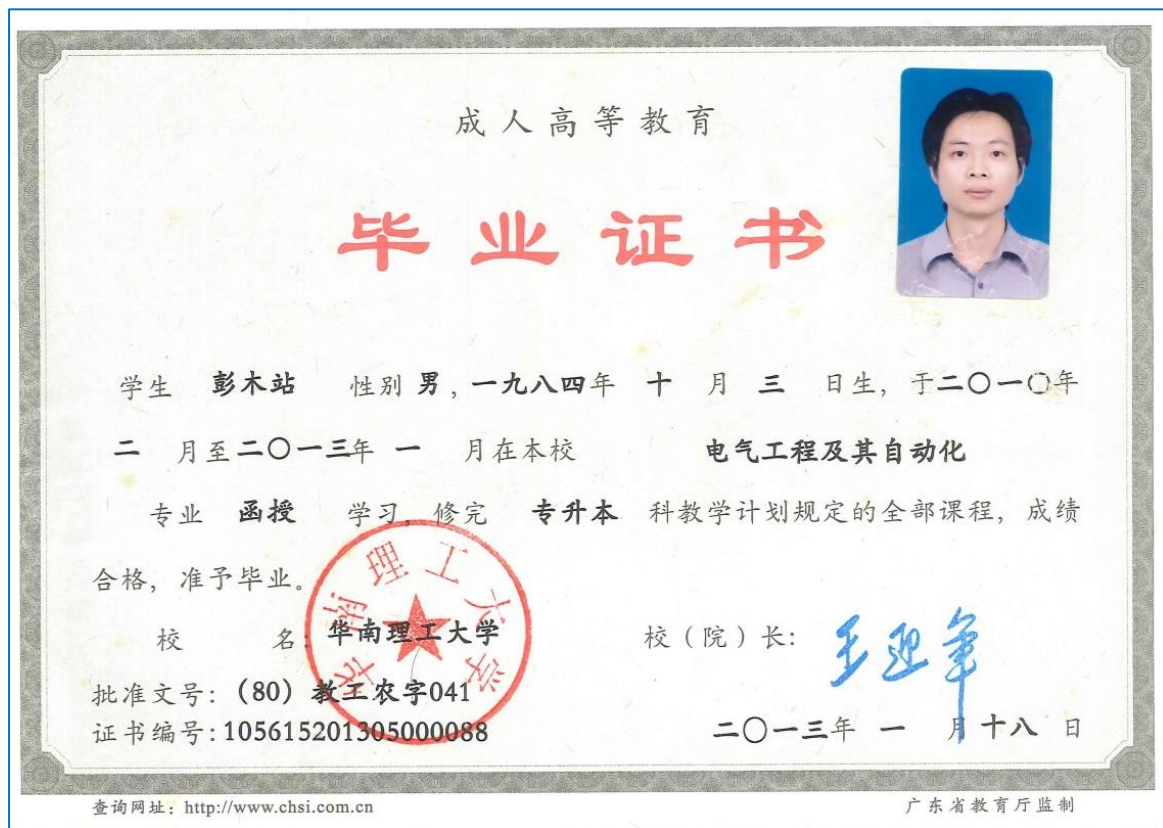 成人高等教育
毕业证书
学生 彭木站 性别 男，一九八四年 十 月 三 日生，于二〇一〇年
二 月至二〇一三年 一 月在本校 电气工程及其自动化
专业 函授 学习，修完 专升本 科教学计划规定的全部课程，成绩
合格，准予毕业。
华南理工大学
校 名：华南理工大学 校（院）长：王迎军
批准文号：（80）教工农字041
证书编号：105615201305000088 二〇一三年 一 月十八 日
查询网址：http://www.chsi.com.cn 广东省教育厅监制